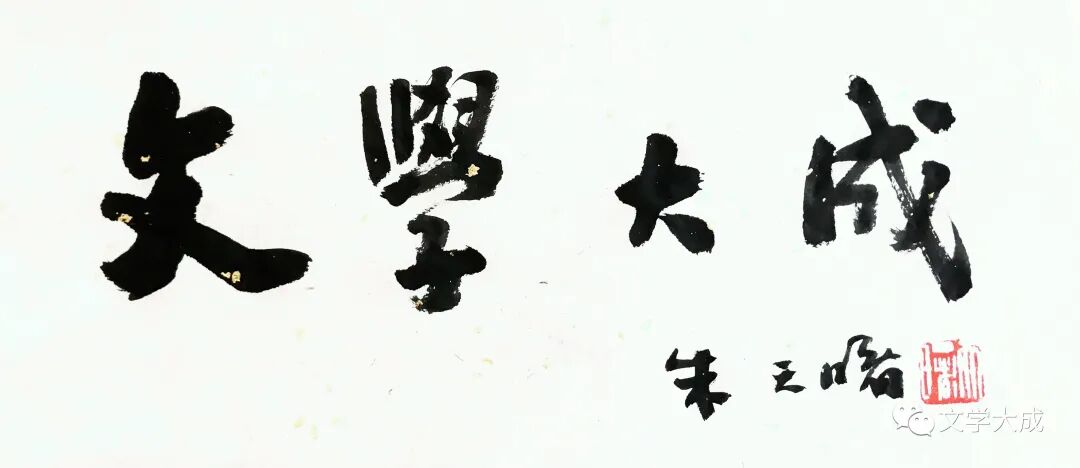 文學大成
朱天曙
文学大成